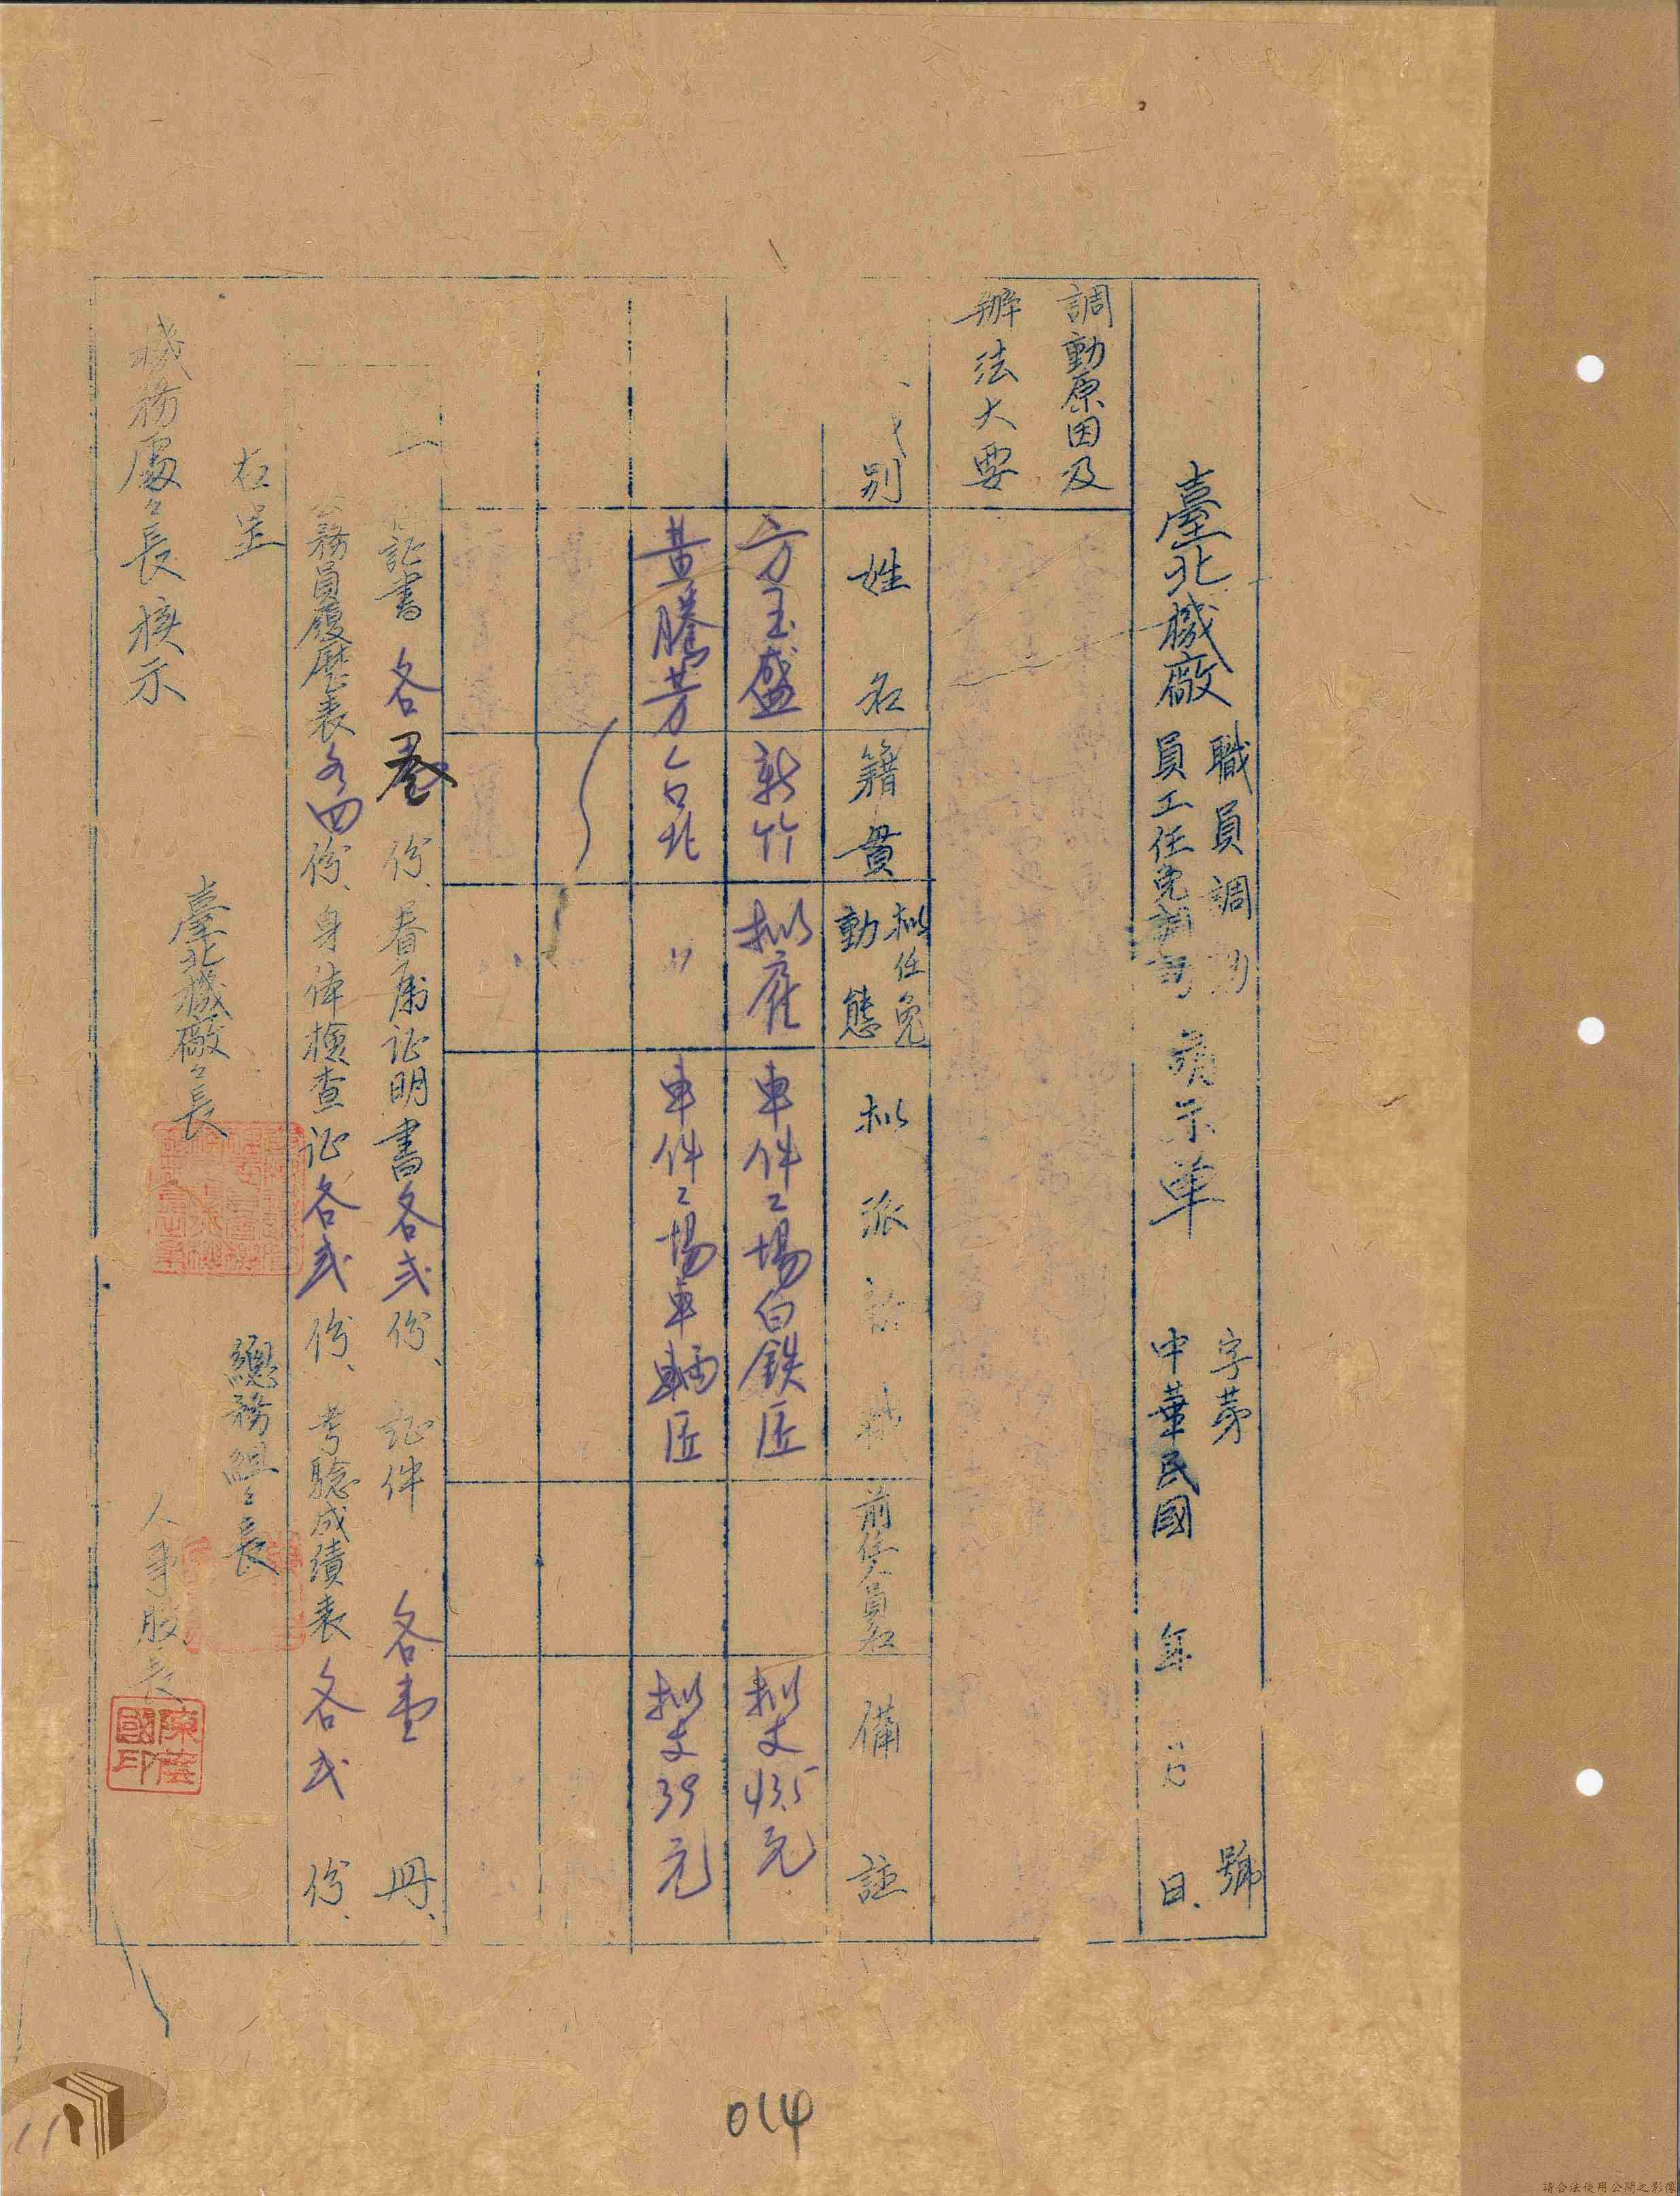 字第 號
臺北機廠 職員調
員工任免 請示單
中華民國 年 月 日
調動原因及
辦法大要
別 姓名 籍貫 拟任免動態 拟派 職 前任人員名 備註
方玉盛 新竹 拟雇 車件工場白鉄匠 拟支43.5元
黃騰芳 台北 〃 車件工場車輛匠 拟支39元
証書各 份、眷屬証明書各弍份、証件各壹冊、
務員履歷表各四份、身体檢查证各弍份、考驗成績表各弍份、
右呈
機務處々長核示
臺北機廠々長
總務組々長
人事股長
陳蔭國印
014
11
請合法使用公開之影像